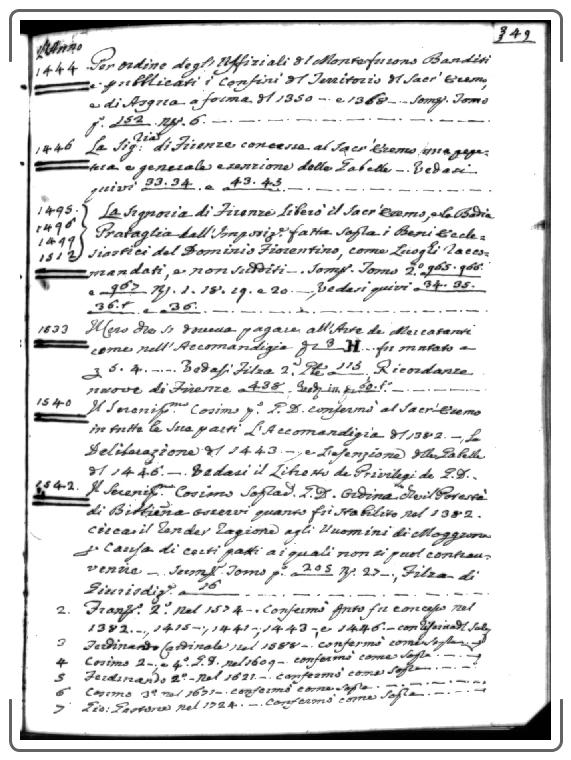 349
Anno
1444 Per ordine degl'Uffiziali di Montefurono Banditi
e pubblicati i Confini del Territorio del Sacr' Eremo,
e di Asqua a forma del 1350 — e 1368 — Somm. Tomo
p.° 152 N.° 6.
1446 La Sig.ria di Firenze concesse al Sacr' Eremo, una perpe=
tua e generale esenzione delle Gabelle — Vedasi
quivi 33.34. e 43.45
1495. La Signoria di Firenze Liberò il Sacr' Eremo, e la Badia
1496 Prataglia dall' fatta sopra i Beni Eccle=
1499 siastici del Dominio Fiorentino, come Luoghi racco=
1512 mandati, e non sudditi — Somm. Tomo 2.° 965.966
e 967 N. 1. 18. 19. e 20 — Vedasi quivi 34. 35.
36.t e 36.
1533 Il Cero che si doveva pagare all' Arte de Mercatanti
come nell' Accomandigia 3 H fu mutato a
5. 4. — Vedasi Filza 2.a 113 Ricordanze
nuove di Firenze 438
1540 Il Sereniss.mo Cosimo p.° G. D. confermò al Sacr' Eremo
in tutte le sue parti L'Accomandigia del 1382. —, La
Deliberazione del 1443 — e L'esenzione delle Gabelle
del 1446. — Vedasi il Libretto de Privilegi de G. D.
1542. Il Sereniss.mo Cosimo G. D. Ordina che il Potestà
di Bibbiena osservi quanto fu stabilito nel 1382.
circa il render ragione agli Uomini di Moggiona
p. Causa di certi patti ai quali non si puol contrav=
venire — Somm. Tomo p.° 205 N. 27 —, Filza di
Giurisdiz. a 16
2. Frans.° 2.° nel 1574 — Confermò quto fu concesso nel
1382 —, 1415 —, 1441 —, 1443 —, e 1446 —
3 Ferdinando Cardinale nel 1588 — confermò come sopra
4 Cosimo 2 — e 4.° G. D. nel 1609 — confermò come sopra
5 Ferdinando 2.° — nel 1621 — confermò come sopra
6 Cosimo 3.° nel 1671 — confermò come sopra
7 Gio: Gastone nel 1724 — Confermò come sopra